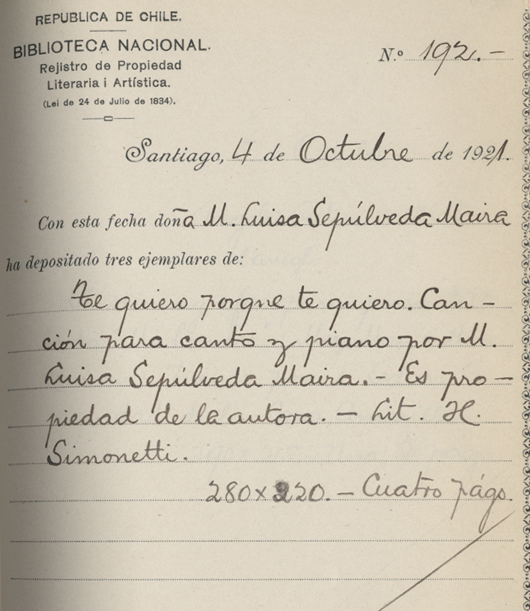 REPUBLICA DE CHILE.
BIBLIOTECA NACIONAL.
Rejistro de Propiedad
Literaria i Artística.
(Lei de 24 de Julio de 1834).
N.º 192.-
Santiago, 4 de Octubre de 1921.
Con esta fecha doña M. Luisa Sepúlveda Maira
ha depositado tres ejemplares de:
Te quiero porque te quiero. Can-
ción para canto y piano por M.
Luisa Sepúlveda Maira.- Es pro-
piedad de la autora. - Lit. H.
Simonetti.
280x220.- Cuatro págs.